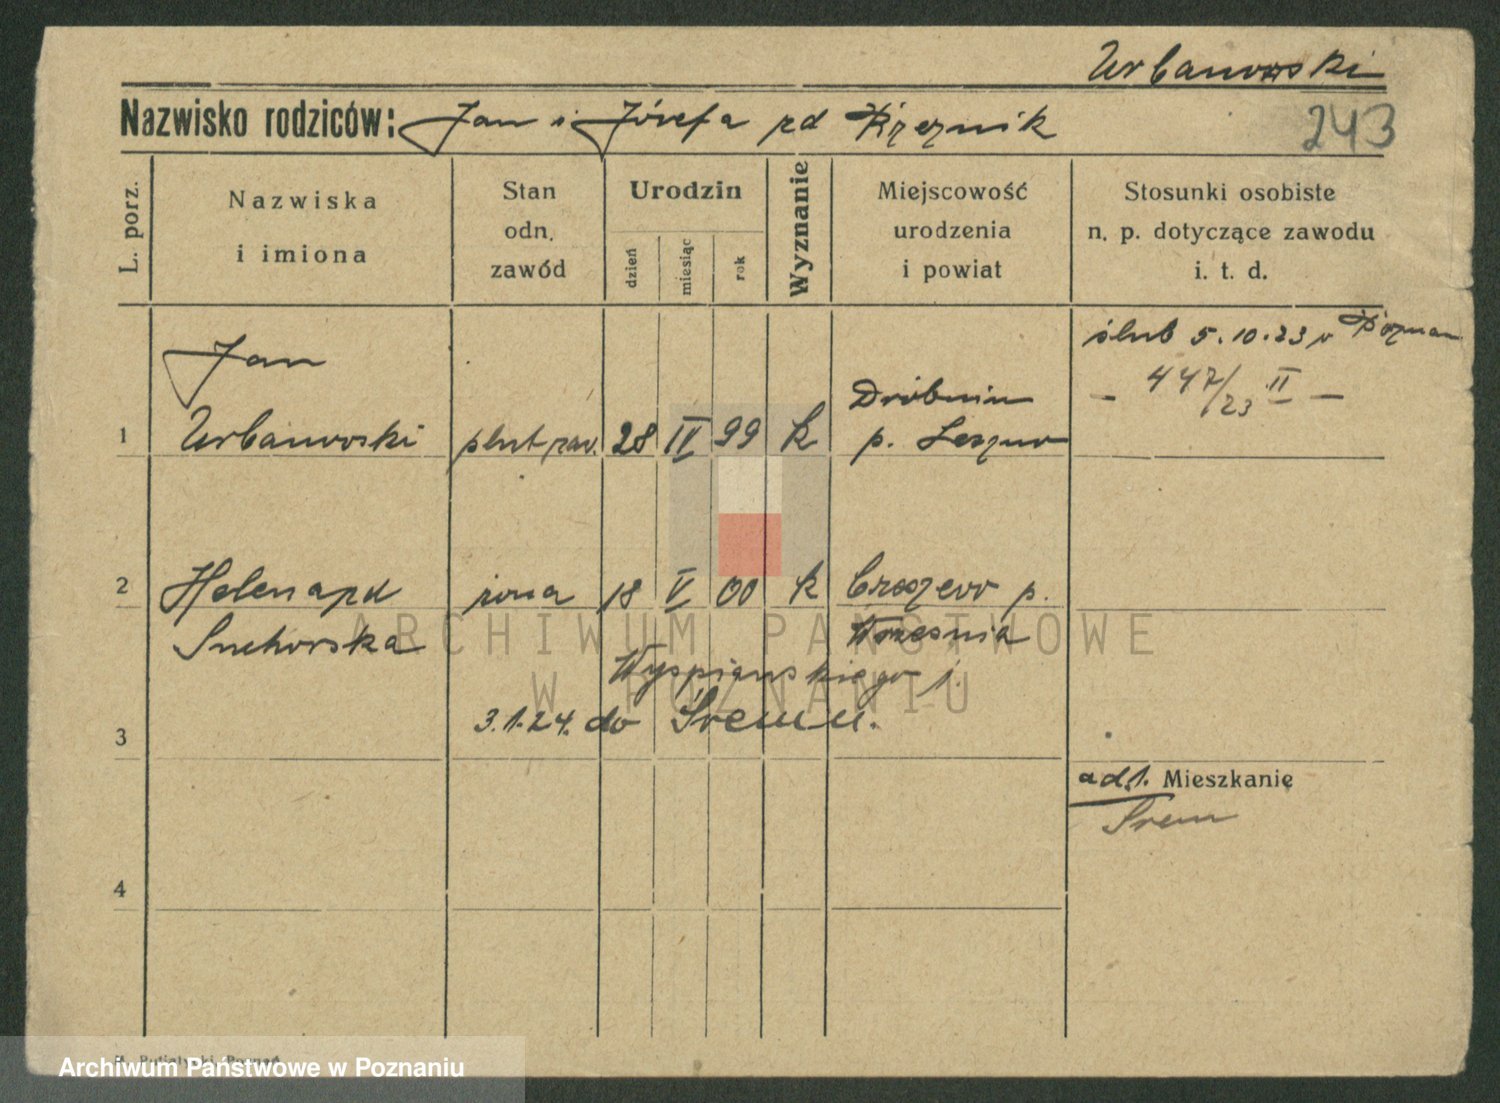 Urbanowski
Nazwisko rodziców: Jan i Józefa zd Rzeznik
243
L. porz.
Nazwiska
i imiona
Stan
odn.
zawód
Urodzin
dzień
miesiąc
rok
Wyznanie
Miejscowość
urodzenia
i powiat
Stosunki osobiste
n. p. dotyczące zawodu
i. t. d.
ślub 5.10.23 w Poznan
- 447/23 II -
Jan
1 Urbanowski plut zaw. 28 IV 99 k Drobnin
p. Leszno
2 Helena zd żona 18 V 00 k p.
Suchorska Września
ARCHIWUM PAŃSTWOWE
W POZNANIU
Wyspiańskiego
3 3.1.24. do Śremu.
ad 1. Mieszkanie
Śrem
4
Archiwum Państwowe w Poznaniu